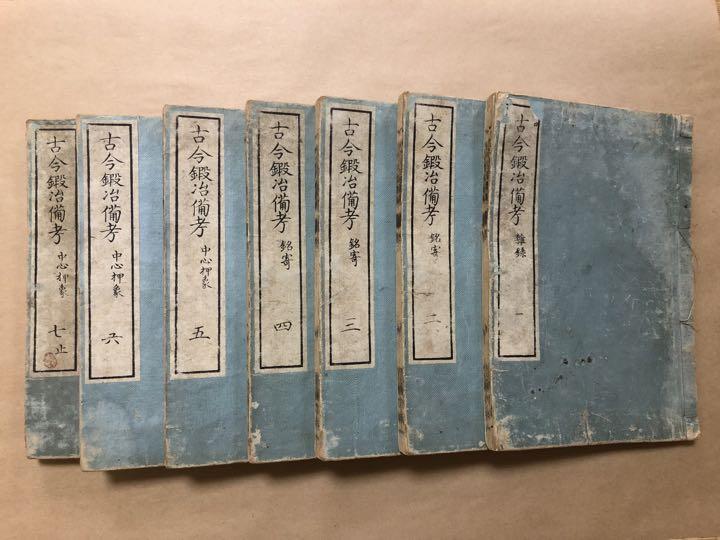 古今鍛冶備考 雑録 一
古今鍛冶備考 銘寄 二
古今鍛冶備考 銘寄 三
古今鍛冶備考 銘寄 四
古今鍛冶備考 中心押象 五
古今鍛冶備考 中心押象 六
古今鍛冶備考 中心押象 七止